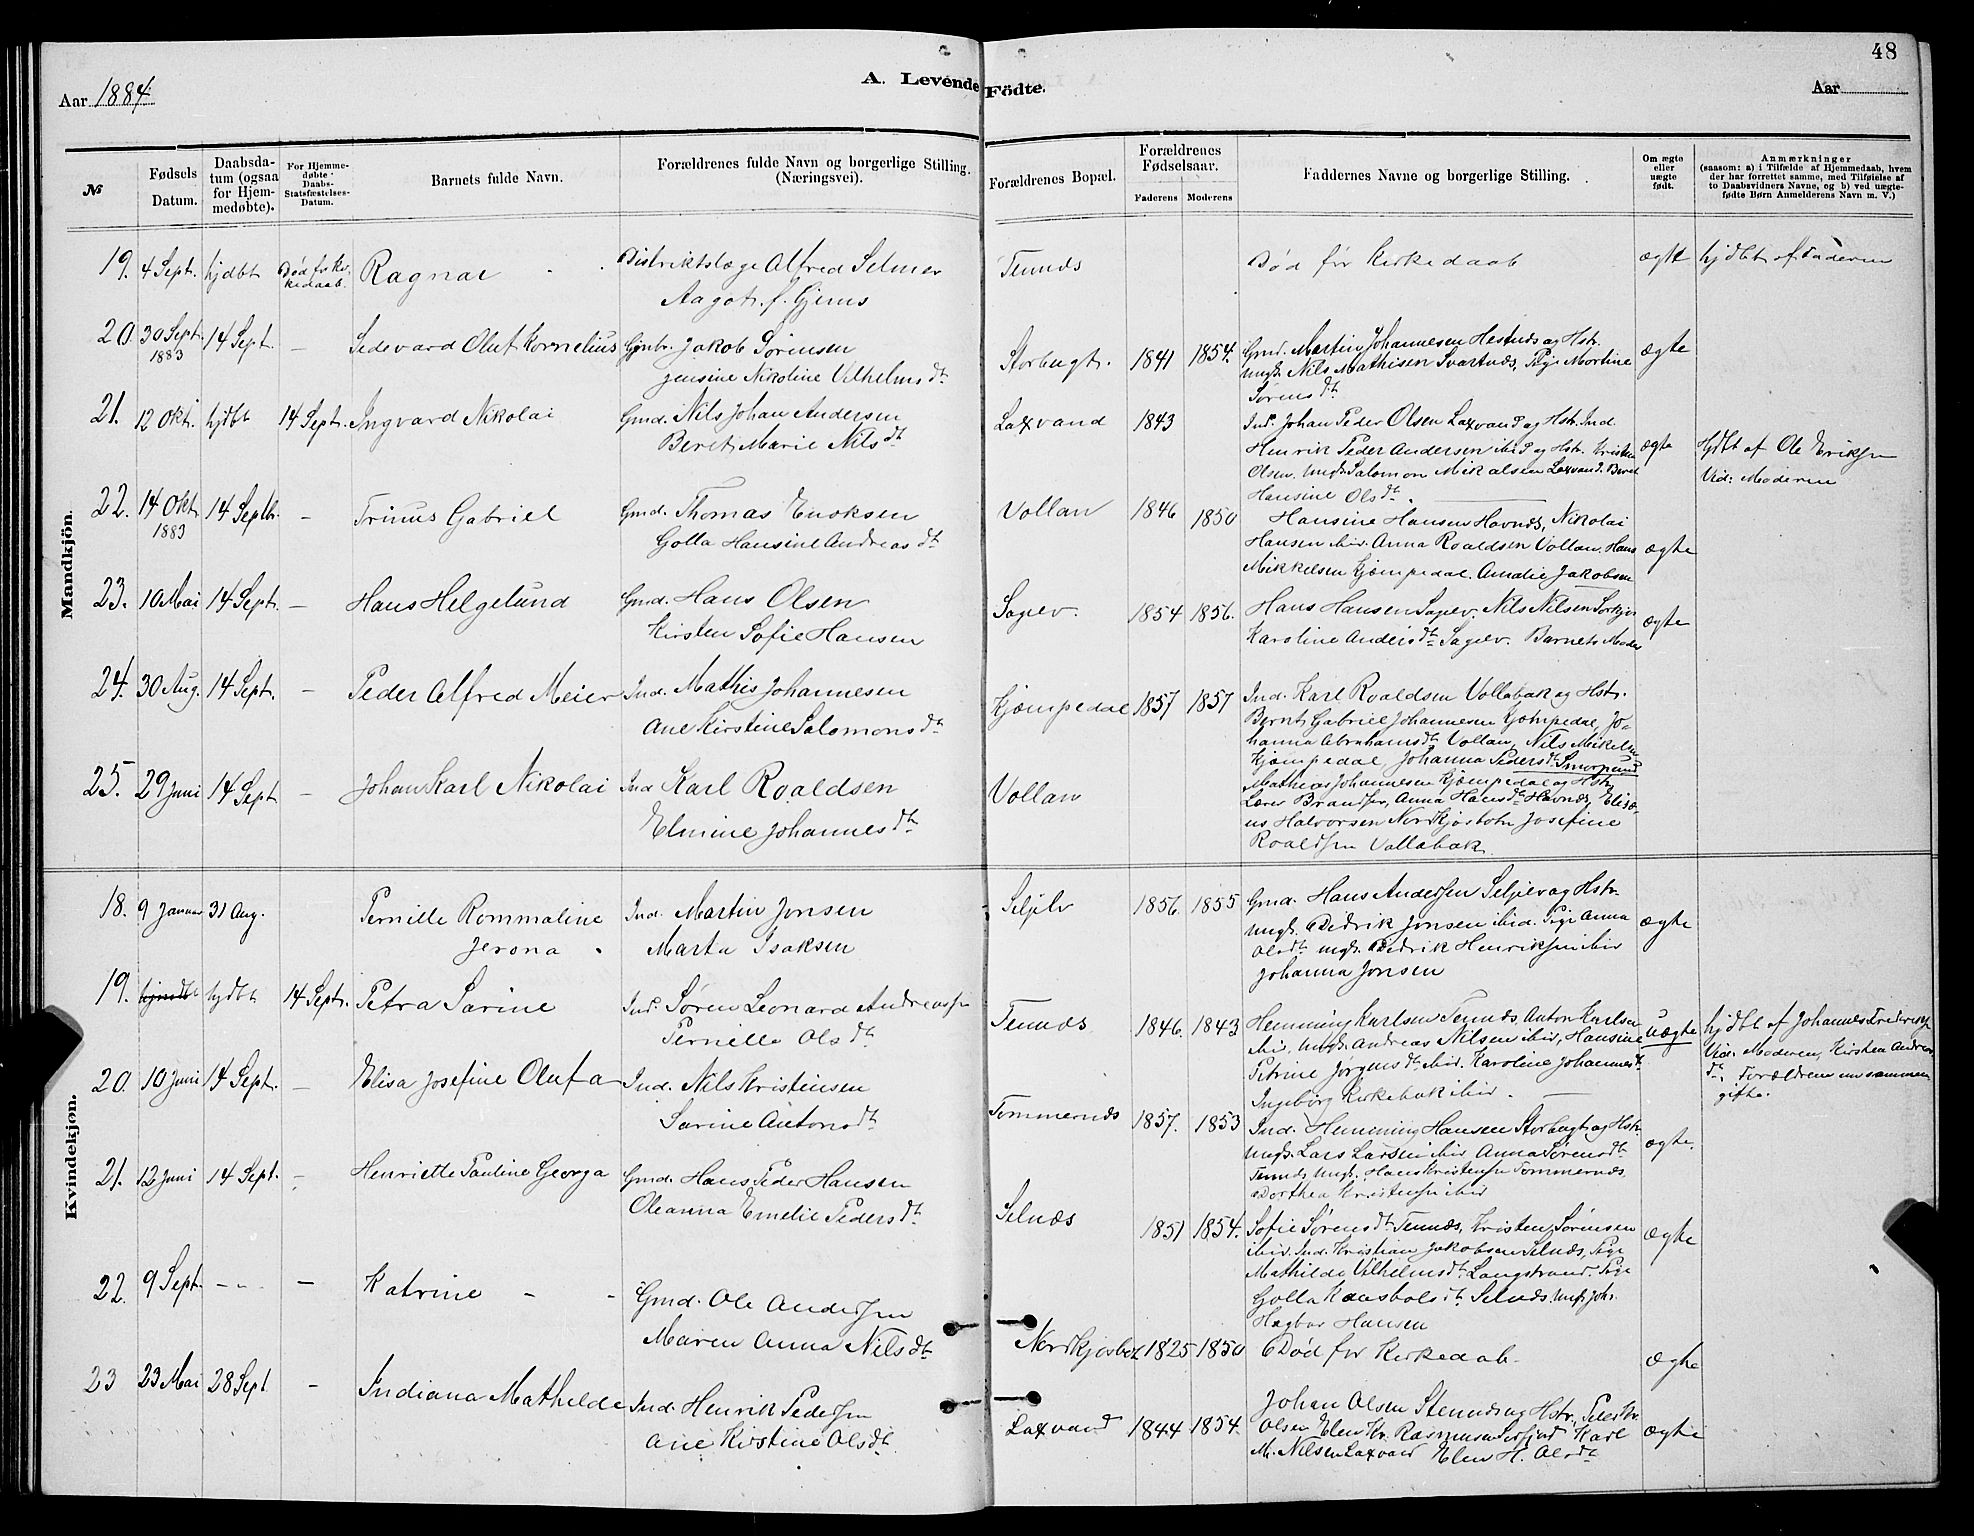 48
A. Levende Födte.
Aar 1884
Aar
№
Fødsels Datum.
Daabsda-
tum (ogsaa
for Hjem-
medøbte).
For Hjemme-
døbte
Daabs-
Statsfæstelses-
Datum.
Barnets fulde Navn.
Forældrenes fulde Navn og borgerlige Stilling.
(Næringsvei).
Forældrenes Bopæl.
Forældrenes
Fødselsaar.
Faderens Moderens
Faddernes Navne og borgerlige Stilling.
Om ægte
eller
uægte
født.
Anmærkninger
(saasom: a) i Tilfælde af Hjemmedaab, hvem
der har forrettet samme, med Tilføielse af
to Daabsvidners Navne, og b) ved uægte-
fødte Børn Anmelderens Navn m. V.)
Mandkjön.
19. 4 Sept. hjdbt Død før Kir-
kedaab. Ragnar Distriktslæge Alfred Selmer
Aagot f. Gjems
Tennæs Død før Kirkedaab ægte hjdbt af Faderen
20. 30 Sept. 1883 14 Sept. — Sedevard Oluf Kornelius Gmbr. Jakob Sørensen
Jensine Nikoline Vilhelmsdt
Storbugt. 1841 1854. Gmd. Martin Johannesen Hestnæs og Hstr.
Ungk. Nils Mathisen Svartnæs, Pige Martine
Sørensdt
ægte
21. 12 Okt. hjdbt 14 Sept. Ingvard Nikolai Gmd. Nils Johan Andersen
Beret Marie Nilsdt
Laxvand 1843 Ind. Johan Peder Olsen Laxvand og Hstr. Ind.
Henrik Peder Andersen ibid og Hstr. Kristen
Olsen. Ungk. Salomon Mikalsen Laxvand. Beret
Hansine Olsdt.
ægte Hjdbt af Ole Eriksen
Vid: Moderen
22. 14 Okt. 1883 14 Septbr. — Trinus Gabriel Gmd. Thomas Enoksen
Golla Hansine Andreasdt
Vollan 1846 1850 Hansine Hansen Havnæs, Nikolai
Hansen ibid. Anna Roaldsen Vollan. Hans
Mikkelsen Kjempedal. Amalie Jakobsen
ægte
23. 10 Mai 14 Sept. — Hans Helgelund Gmd. Hans Olsen
Kirsten Sofie Hansen
Sagelv. 1854 1856. Hans Hansen Sagelv. Nils Nilsen Sørkjos
Karoline Andersdt Sagelv. Barnets Moder
ægte
24. 30 Aug. 14 Sept. — Peder Alfred Meier Ind. Mathis Johannesen
Ane Kirstine Salomonsdt
Kjæmpedal 1857 1857 Ind. Karl Roaldsen Vollabak og Hstr.
Bernt Gabriel Johannesen Kjempedal, Jo-
hanna Abrahamsdt Vollan, Nils Mikelsen
Kjæmpedal Johanna Pedersdt
25. 29 Juni 14 Sept — Johan Karl Nikolai Ind Karl Roaldsen
Elmine Johannesdt
Vollan Mathias Johannesen Kjæmpedal og Hstr.
Lærer Anna Hansdt Havnæs, Elisæ-
us Halvorsen Nordkjosbotn Josefine
Roaldsen Vollabak
Kvindekjøn.
18. 9 Januar 31 Aug. Pernille Rommaline
Jerona Ind. Martin Jonsen
Marta Isaksen
Seljelv 1856. 1855 Gmd. Hans Andersen Seljelv og Hstr.
Ungk. Didrik Jonsen ibid. Pige Anna
Olsdt Ungk. Didrik Henriksen ibid
Johanna Jonsen
ægte
19. hjdbt 14 Sept. Petra Sarine Ind. Søren Leonard Andreassen
Pernille Olsdt
Tennæs 1846. 1843 Hemming Karlsen Tennæs, Anton Karlsen
ibid, Ungk. Andreas Nilsen ibid, Hansine
Petrine Jørgensdt ibid. Karoline Johannesdt
Ingeborg Kirkebak ibid.
uægte hjdbt af Johannes Frederiksen
Vid: Moderen, Kirsten Andreas
dt, Forældrene nu sammen
gifte.
20. 10 Juni 14 Sept. — Elisa Josefine Olufa Ind. Nils Kristensen
Sarine Antonsdt
Tømmernæs 1857. 1853 Ind. Hemming Hansen Storbugt og Hstr.
Ungk. Lars Larsen ibid Anna Sørensdt
Tennæs, Ungk. Hans Kristensen Tømmernæs,
Dorthea Kristensen ibid
ægte.
21. 12 Juni 14 Sept. — Henriette Pauline Georga Gmd. Hans Peder Hansen
Oleanna Emelie Pedersdt
Selnæs 1851 1854. Sofie Sørensdt Tennæs, Kristen Sørensen
ibid. Ind. Kristian Jakobsen Selnæs, Pige
Mathilde Vilhelmsdt Langstrand. Pige
Golla Selnæs, Ungk. Joh.
Hagbar Hansen
ægte
22. 9 Sept. - - - — Katrine - - Gmd. Ole Andersen
Maren Anna Nilsdt
Nordkjosbot 1825 1850 Død før Kirkedaab. ægte
23 23 Mai 28 Sept - Indiana Mathilde Ind. Henrik Pedersen
Ane Kirstine Olsdt
Laxvand 1844 1854. Johan Olsen Stennæs og Hstr., Peder Kr.
Olsen Elen Kr. Rasmussen Karl
M. Nilsen Laxvand Elen H. Olsdt
ægte